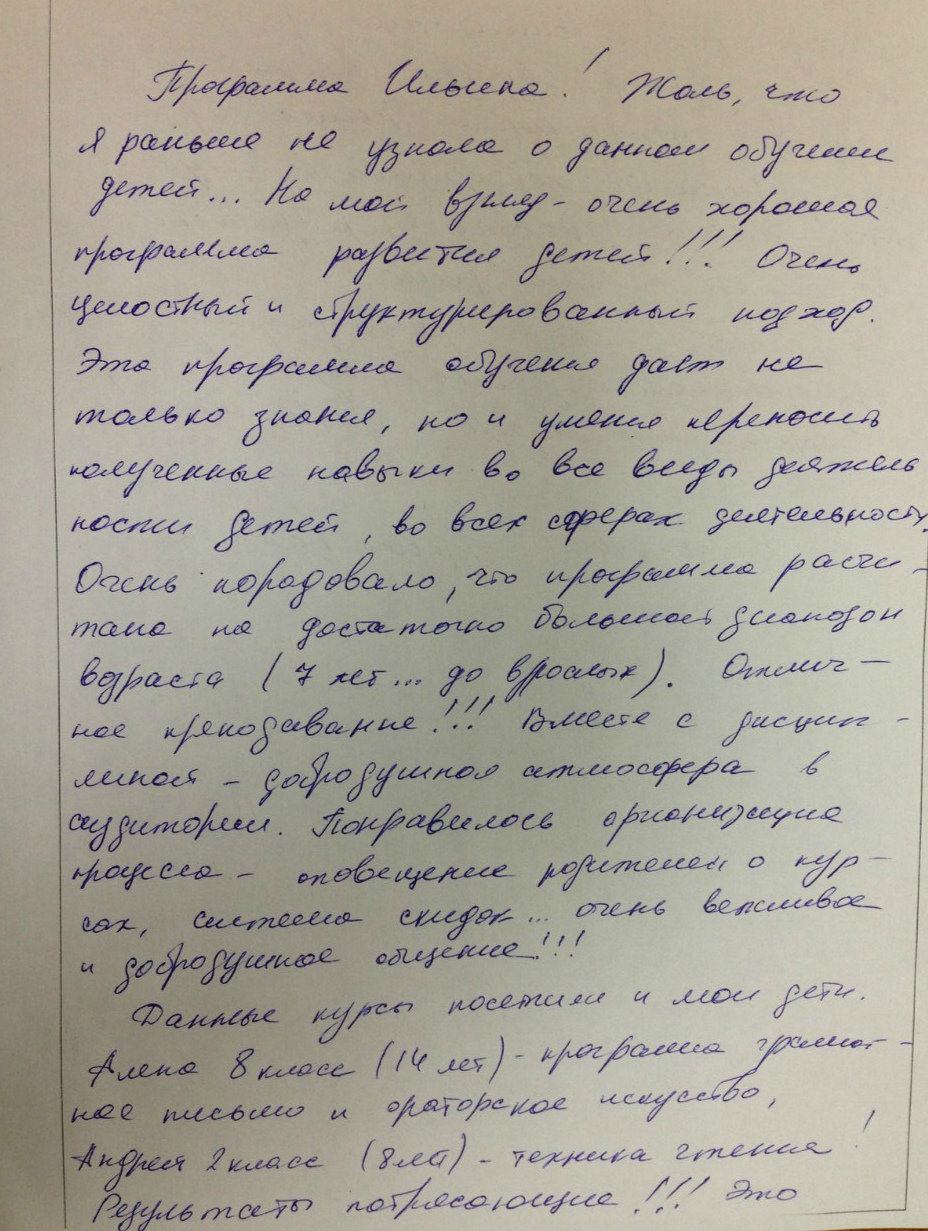 Программа Ильина! Жаль, что
я раньше не узнала о данном обучении
детей... На мой взгляд - очень хорошая
программа развития детей!!! Очень
целостный и структурированный подход.
Эта программа обучения даёт не
только знания, но и умения переносить
полученные навыки во все виды деятель
ности детей, во всех сферах деятельности.
Очень порадовало, что программа расчи-
тана на достаточно большой диапозон
возраста (7 лет... до взрослых). Отлич-
ное преподавание!!! Вместе с дисцип-
линой - добродушная атмосфера в
аудитории. Понравилось организация
процесса - оповещение родителей о кур-
сах, система скидок... очень вежливое
и добродушное общение!!!
Данные курсы посетили и мои дети.
Алена 8 класс (14 лет) - программа грамот-
ное письмо и ораторское искусство,
Андрей 2 класс (8 лет) - техника чтения!
Результаты потрясающие!!! Это